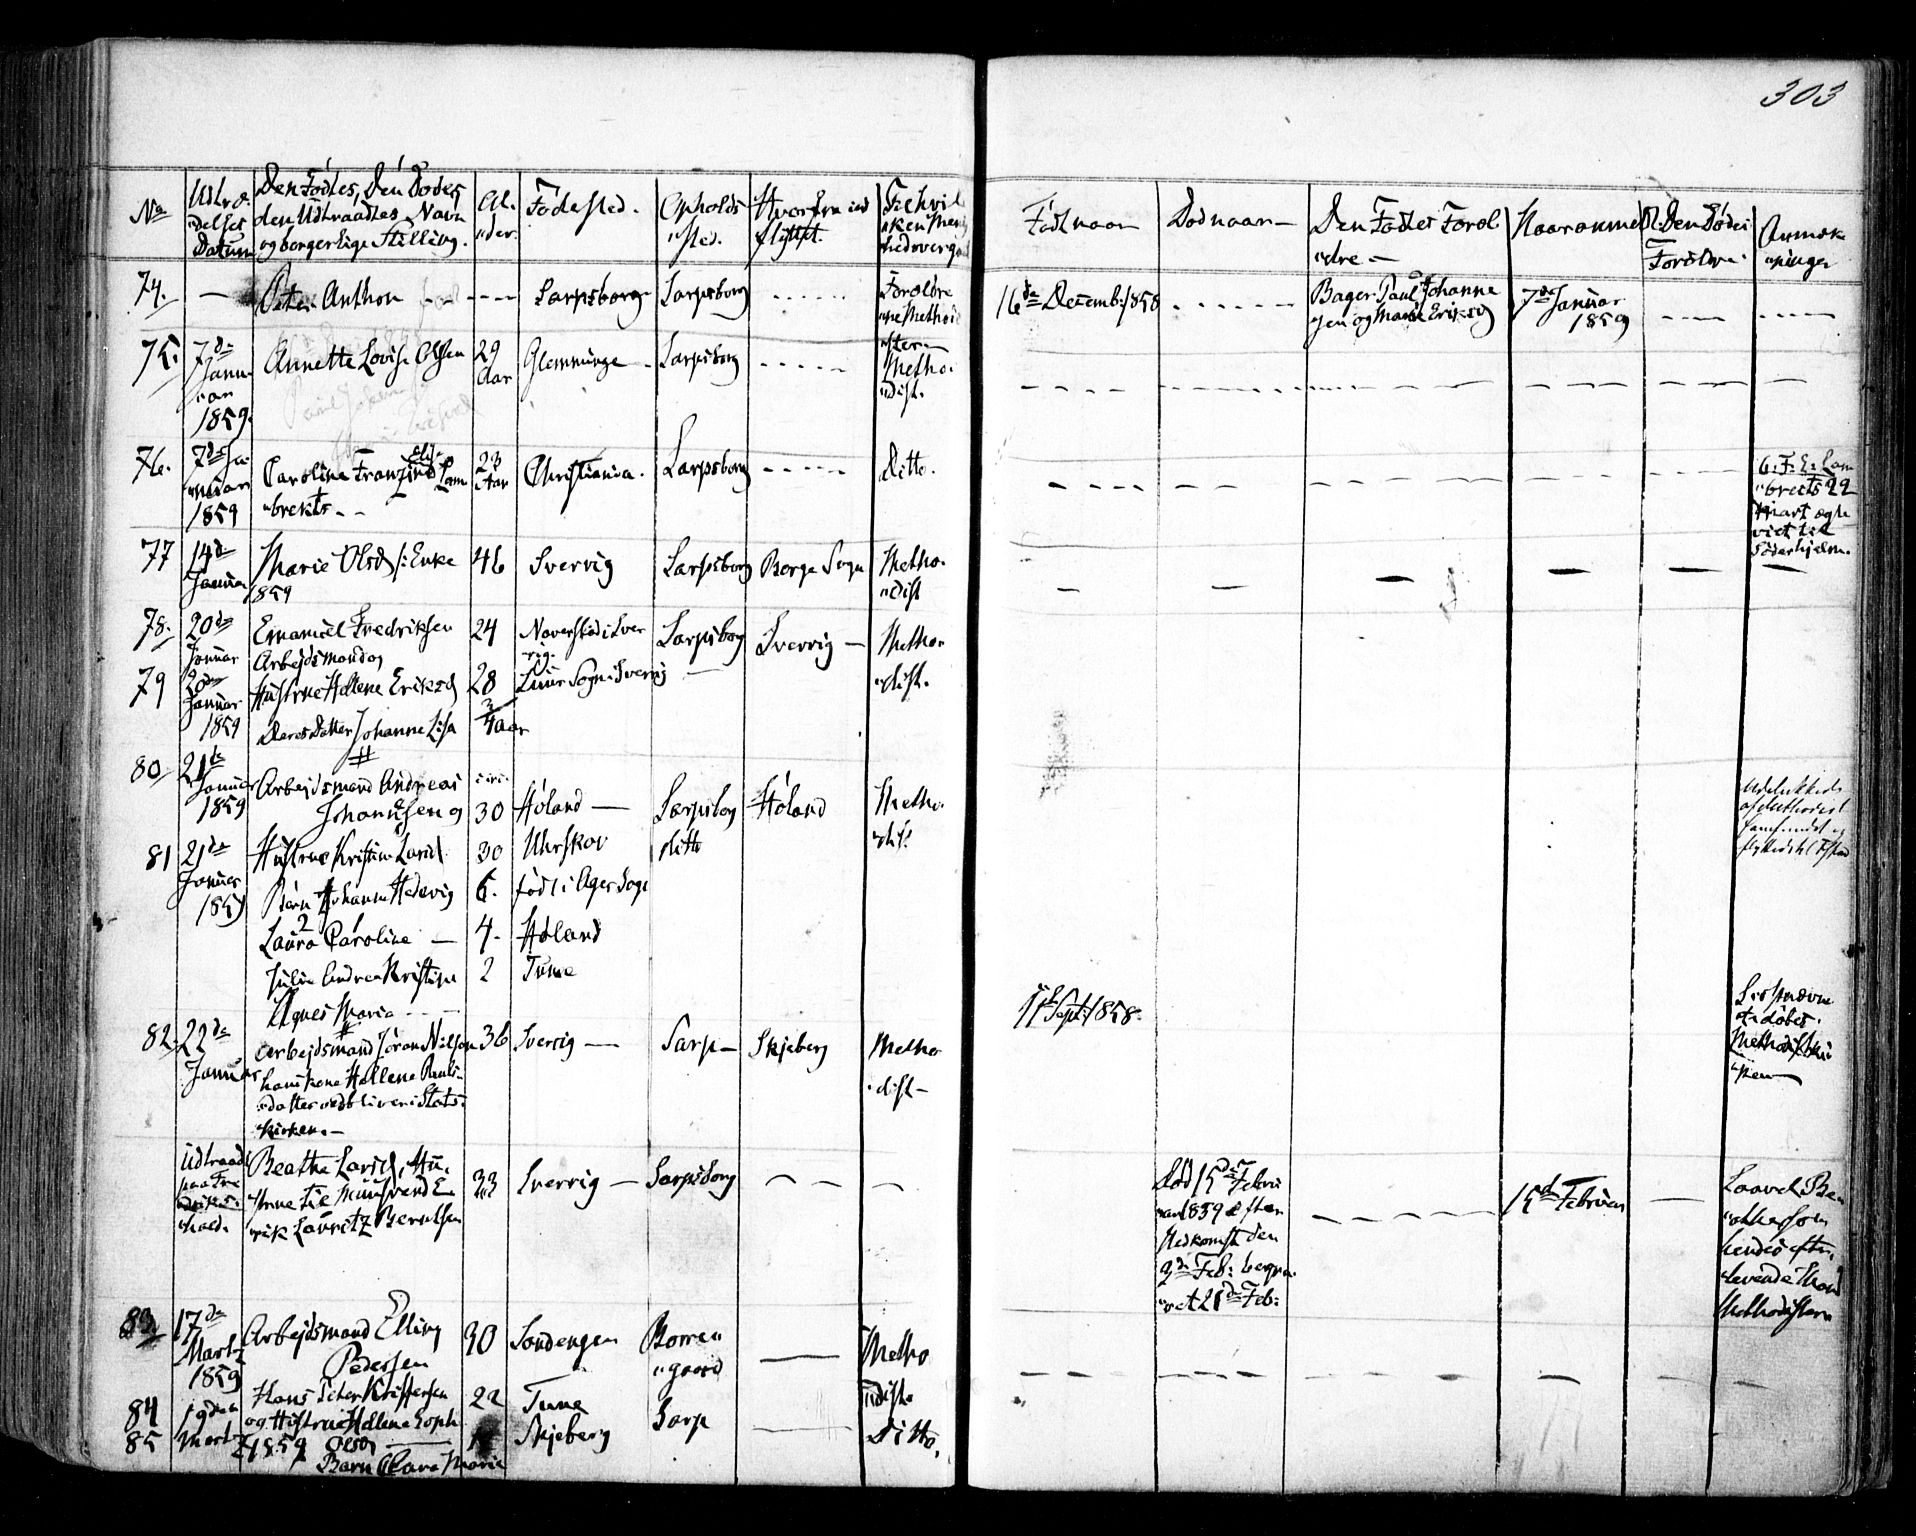 303
No
Udtræ-
"delses
Datum
Den Fødtes, Den Dødes,
den Udtraadtes Navn
og borgerlige Stilling.
Al-
"der.
Fødested.
Opholds
"sted.
Hvorfra ind
flyttet.
Til hvil
"ken Menig
hed overgaaet
Født naar
Død naar
Den Fødtes Foræl
"dre
Naar anmeldt
Den Dødes
Forældre
Anmærk
"ninger
74.
Peter Anthon
Sarpsborg
Sarpsborg
Forældre
"ne Methodi
"ster
16de Decemb: 1858
Bager Paul Johanne
sen og Marie Eriksd
7de Januar
1859
75.
7de
Janu-
"ar
1859.
Annette Lovise Olsen
29
Aar
Glemminge
Sarpsborg
Metho-
"dist.
76.
7de Ja-
"nuar
1859
Caroline Franzine Eli- Lam
"brekts
23
Aar
Christiania.
Sarpsborg
Ditto.
C: F: E: Lam
"brects 22
Mart ægte
viet til
Söderhjelm.
77
14de
Januar
1859
Marie Olsd /: Enke
46
Sverrig
Sarpsborg
Borge Sogn
Metho-
"dist
78.
20de
Januar
Emanuel Fredriksen
Arbejdsmand og
24
Naverstad i Sver
"rig.
Sarpsborg
Sverrig
Metho-
"dist.
79
20de
Januar
1859
Hustrue Hellene Eriksd
28
Luur Sogn i Sverrig
Deres Datter Johanne Lisa
3/4 aar
80
21de
Januar
1859
Arbejdsmand Andreas
Johannesen og
30
Høland
Sarpsborg
Høland
Metho-
"dist
Udelukkede
af Methodist
samfundet og
81
21de
Januar
1859
Hustrue Kristine Larsd.
30
Uhrskov
ditto
Børn Johanne Hedevig
6.
født i Ager Sogn
Laura Caroline
4.
Høland
Julie Andrea Kristine
2
Tune
Agnes Maria
11te Sept: 1858.
Sistnævnte
er døbt i
Methodistkir
"ken
82.
22de
Januar
Arbejdsmand Jöran Nilsen
hans kone Hellene Pauls-
"datter vedbliver i Stats-
"kirken.
36
Sverrig
Sarp
Skjeberg
Metho
"dist
Udtraadt
paa Fre
"driks-
"hald.
Beathe Larsd, Hu-
"strue til Muursvend E-
"rik Lauritz Berntsen
33
Sverrig
Sarpsborg
Død 15de Febru
"ar 1859 efter
Nedkomst den
3de Feb: begra-
"vet 21de Feb:
15de Februar
hendes efter-
"levende Mand
Methodistern
83
17de
Martz
1859
Arbejdsmand Elling
Pedersen
30
Søndengen
Borre-
"gaard
Metho
"dist
84
85
19den
Martz 1859
Hans Peter Kristersen
og Hustrue Hellene Soph
Olsd
Barn Clara Marie
22
Tune
Skjeberg
Sarp
Ditto.